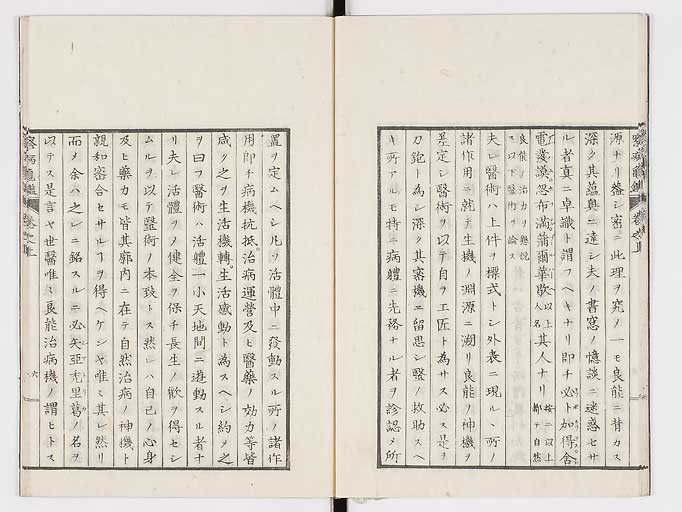 源ナリ蓋シ密ニ此理ヲ究ノ一モ良能ニ背カス
深ク其蘊奥ニ達シ夫ノ書窓ノ憶談ニ迷惑セサ
ル者真ニ卓識ト謂フヘキナリ即チ必ト加得舎
電義漢忽布満蒲爾華歇以上人名其人ナリ按ニ以上都テ自然
良能ノ治力ヲ懸説ス以下医術ヲ論ス
夫レ醫術ハ上件ヲ標式トシ外表ニ現ルヽ所ノ
諸作用ニ就テ生機ノ淵源ニ溯リ良能ノ神機ヲ
差定シ醫術ヲ以テ自ラ工匠ト為サス必ス是ヲ
刀鉋ト為シ深ク其審機ニ留思シ緊ノ救助スヘ
キ所アルモ特ニ病軆ニ先務ナル者ヲ診認メ所
置ヲ定ムヘシ凡ソ活體中ニ發動スル所ノ諸作
用即チ病機抗抵治病運營及ヒ醫藥ノ効力等皆
咸ク之ヲ生活機轉生活感動ト為スヘシ約ノ之
ヲ曰フ醫術ハ活體一小天地間ニ遊動スル者ナ
リ夫レ活體ヲノ健全ヲ保チ長生ノ歡ヲ得セシ
ムルヲ以テ毉術ノ本致トス然レハ自己ノ心身
及ヒ藥力モ皆其廓内ニ在テ自然治病ノ神機ト
親和密合セサルヿヲ得ヘケンヤ唯ミ其レ然リ
而ノ余ハ之レニ銘スルニ必ㇲ亞禿里葛ノ名ヲ
以テス是言ヤ世醫唯ミ良能治病機ノ謂ヒトス
察病亀鑑 巻之上
六